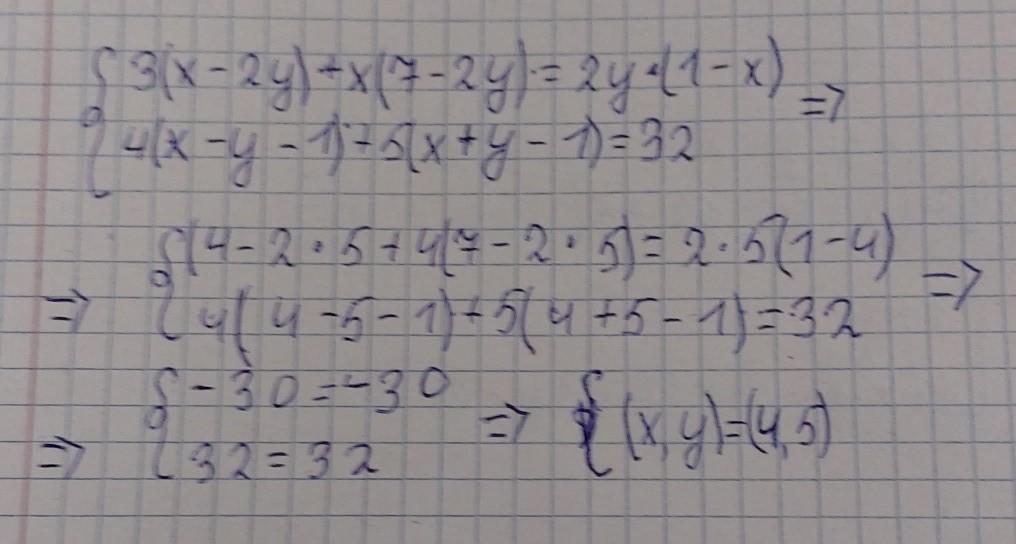 { 3(x-2y)+x(7-2y)=2y·(1-x)
{ 4(x-y-1)+5(x+y-1)=32 =>
=> { (4-2·5+4(7-2·5)=2·5(1-4)
{ 4(4-5-1)+5(4+5-1)=32 =>
=> { -30=-30
{ 32=32 => { (x,y)=(4,5)